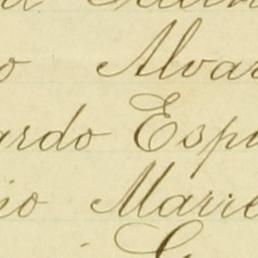 o Alvar
ardo Espi
io Marre